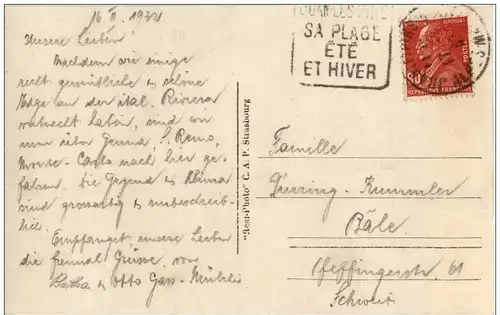 16 II. 1932
Unsere Lieben!
Nachdem wir einige
recht gemütliche & schöne
Tage an der ital. Riviera
verbracht haben, sind wir
nun über Genua, S. Remo,
Monte-Carlo nach hier ge-
fahren. Die Gegend & Klima
sind grossartig & unbeschreib-
lich.
Empfanget, unsere Lieben
die Grüsse, von
Otto Gass-
"Real-Photo" C. A. P. Strasbourg
SA PLAGE
ÉTÉ
ET HIVER
POSTES
RÉPUBLIQUE FRANÇAISE
Familie
-Kummler
Bâle
Pfeffingerstr. 61
Schweiz